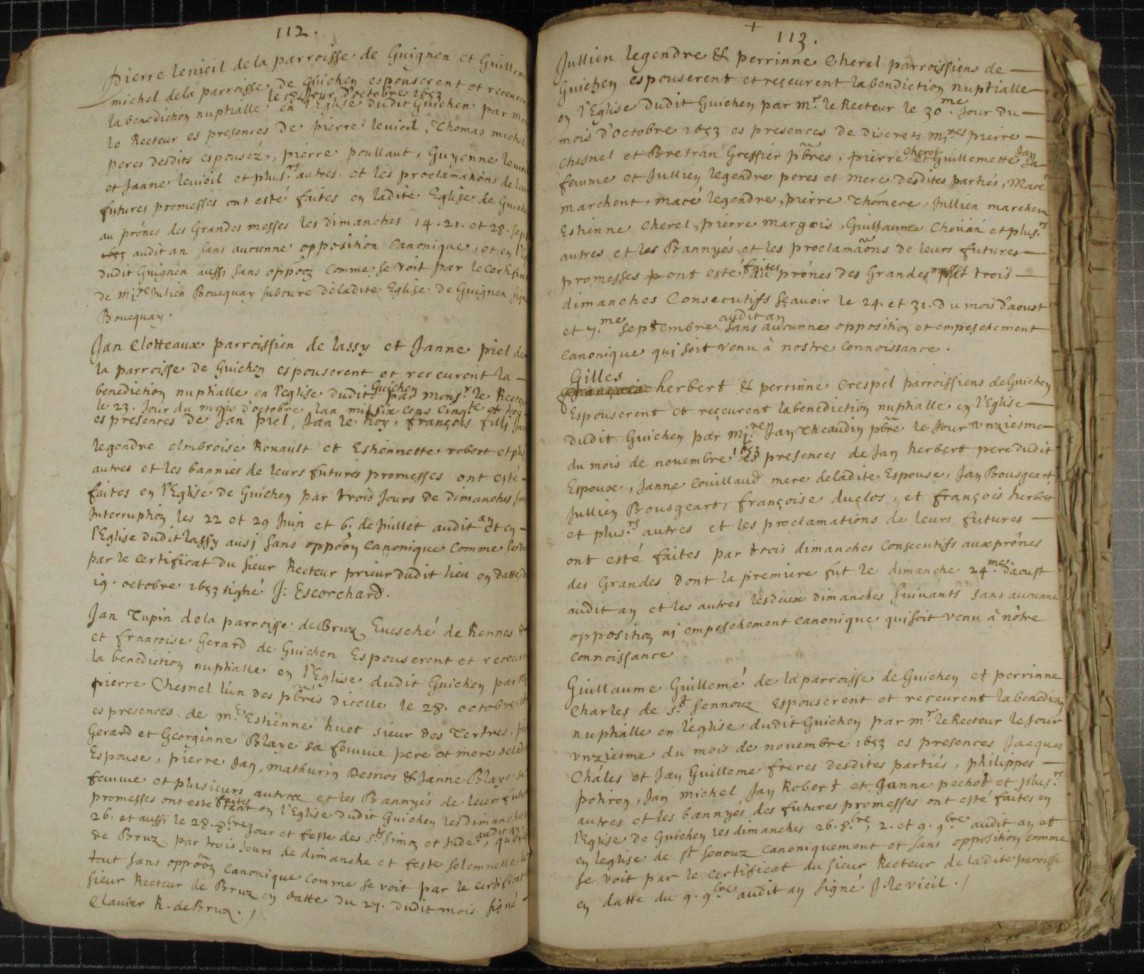 112.
Pierre levieil de la parroisse de Guignen et Guillem
michel de la parroisse de Guichen espouserent et receurent
la benediction nuptialle en l'Eglise dudit Guichen par mon
le 18 Jour d'octobre 1653
le Recteur es presences de pierre levieil, Thomas michel
peres desdits espousez, pierre poullaut, Guyonne levieil
et Janne levieil et plus.rs autres et les proclamations de leurs
futures promesses ont esté faites en ladite Eglise de Guichen
au prones des Grandes messes les dimanches 14. 21. et 28. sept
audit an sans aucunne opposition Canonique, et en l'E
dudit Guignen aussi sans oppōōn Comme se voit par le certificat
de M.re Julien Boucquay subcuré de ladite Eglise de Guignen signé
Boucquay.
Jan Clotteaux parroissien de lassy et Janne piel de
la parroisse de Guichen espouserent et receurent la
benediction nuptialle en l'eglise dudit Guichen par mons.r le Recteur
le 23. Jour du mois d'octobre lan mil six cens cinq.te et troy
es presences de Jan piel, Jan le Roy, françois fills Jan
legendre Ambroise Renault et Esthiennette robert et plus
autres et les bannies de leurs futures promesses ont esté
faites en l'Eglise de Guichen par trois Jours de dimanches sans
Interruption les 22 et 29 Juin et 6. de Juillet audit an et en
l'Eglise dudit lassy ausi sans oppōōn canonique comme se voit
par le certificat du sieur Recteur prieur dudit lieu en datte du
19. octobre 1653 signé J: Escorchard.
Jan Tupin de la parroisse de Bruz Evesché de Rennes et
et francoise Gerard de Guichen Espouserent et receurent
la benediction nuptialle en l'Eglise dudit Guichen par M
pierre Chesnel l'un des pbres dicelle le 28. octobre
es presences de m.e Estienne huet sieur des Tertres,
Gerard et Georginne Blaye sa femme pere et mere de ladite
Espouse, pierre Jan, mathurin Desnos & Janne Blaye sa
femme et plusieurs autres et les Bannyes de leur futures
promesses ont esté faites tant en l'Eglise dudit Guichen les dimanches
26. et aussi le 28. 8.bre Jour et feste des S.ts Simon et Jude audit an, qu'en
de Bruz par trois Jours de dimanche et feste solemnelle le
tout sans oppōōn canonique comme se voit par le certificat
sieur Recteur de Bruz en datte du 27. dudit mois signé
Clavier R. de Bruz. /
113.
Jullien legendre & perrinne Cherel parroissiens de
Guichen espouserent et reçeurent la benediction nuptialle
en l'Eglise dudit Guichen par m.r le Recteur le 30.me Jour du
mois d'octobre 1653 es presences de discrets m.res pierre
Chesnel et Bertran Greffier pb̃res, pierre Cherel et Guillemette Jan sa
femme et Jullien legendre peres et mere desdites parties, Macé
marchent, macé legendre, pierre Thomere, Jullien marchent
Estienne Cherel, pierre margois, Guillaume Choüan et plus.rs
autres et les Bannyes et les proclamãons de leurs futures
promesses ont esté faites prônes des Grandes trois
dimanches Consecutifs sçavoir le 24. et 31. du mois d'aoust
et 7.me septembre audit an sans aucunnes opposition et empeschement
canonique qui soit venu à nostre connoissance.
Gilles herbert & perrinne Crespel parroissiens de Guichen
Espouserent et reçeurent la benediction nuptialle en l'Eglise
dudit Guichen par M.re Jan theaudin pbr̃e le Jour unziesme
du mois de novembre 1653 es presences de Jan herbert pere dudit
Espoux, Janne Couillaud mere de ladite Espouse, Jan Bousgeart
Jullien Bousgeart, françoise duclos, et françois herbert
et plus.rs autres et les proclamations de leurs futures
ont esté faites par trois dimanches consecutifs aux prônes
des Grandes dont la premiere fut le dimanche 24.me d'aoust
audit an et les autres les deux dimanches suivants sans aucunne
opposition nj empeschement canonique qui soit venu à nôtre
connoissance
Guillaume Guillemé de la parroisse de Guichen et perrinne
Charles de S.t Sennoux Espouserent et reçeurent la benediction
nuptialle en l'eglise dudit Guichen par m.r le Recteur le Jour
unzieme du mois de novembre 1653 es presences Jacques
Châles et Jan Guillemé freres desdites parties, philippes
pohiron, Jan michel Jan Robert et Janne pechot et plus.rs
autres et les bannyes des futures promesses ont esté faites en
l'Eglise de Guichen les dimanches 26. 8.bre, 2. et 9. 9.bre audit an et
en l'eglise de S.t Senouz Canoniquement et sans opposition comme
se voit par le certificat du sieur Recteur de ladite paroisse
en datte du 9. 9.bre audit an signé J. levieil. /